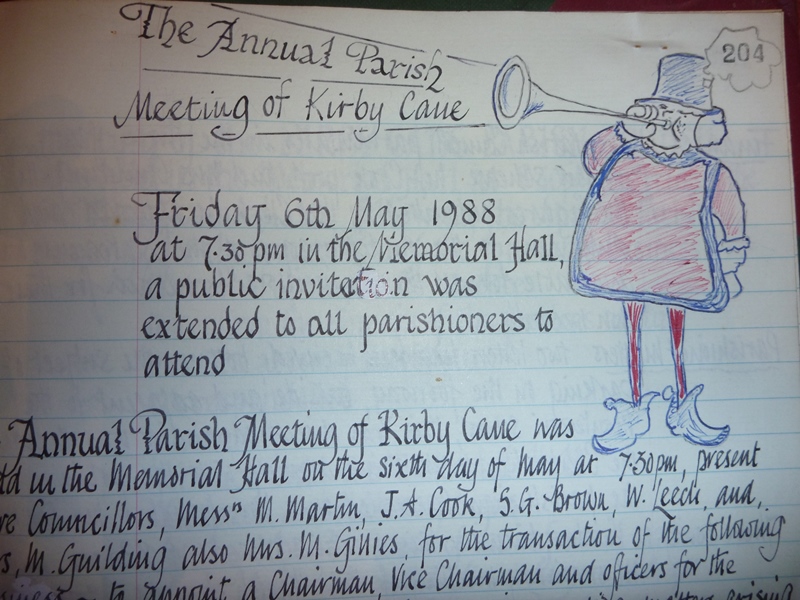 204
The Annual Parish
Meeting of Kirby Cane
Friday 6th May 1988
at 7.30 pm in the Memorial Hall,
a public invitation was
extended to all parishioners to
attend
Annual Parish Meeting of Kirby Cane was
in the Memorial Hall on the sixth day of May at 7.30pm, present
Councillors, Messrs M. Martin, J.A. Cook, S.G. Brown, W. Leech, and,
M. Guilding also Mrs. M. Gillies, for the transaction of the following
to appoint a Chairman, Vice Chairman and officers for the
matters arising